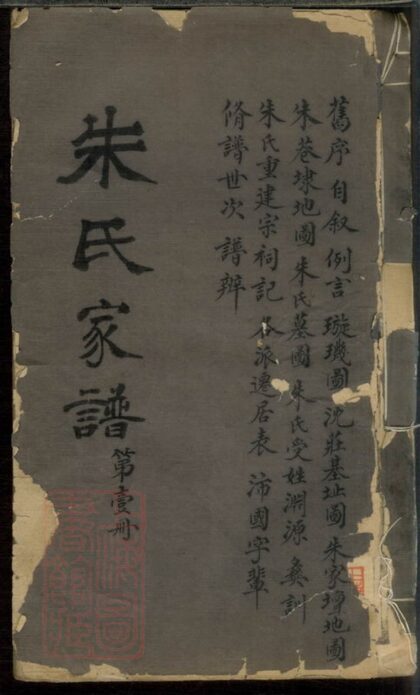 舊序 自叙 例言 璇璣圖 沈莊基址圖 朱家埠地圖
朱巷埭地圖 朱氏墓圖 朱氏受姓淵源 彝訓
朱氏重建宗祠記 各派遷居表 沛國字輩
脩譜世次 譜辨
朱氏家譜
第壹册